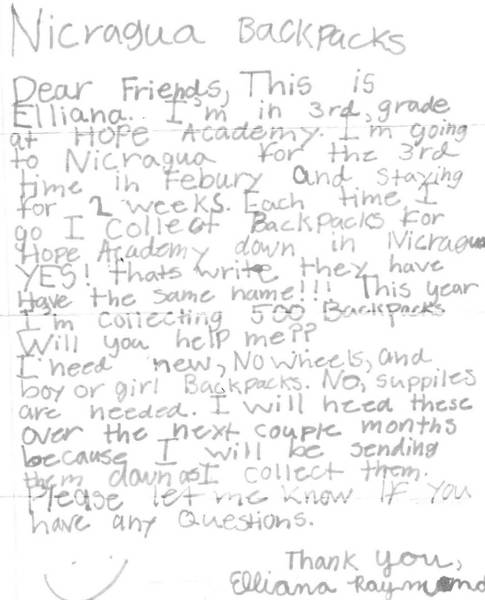 Nicragua Backpacks
Dear Friends, This is
Elliana. I'm in 3rd, grade
at HOPE Academy. I'm going
to Nicragua for the 3rd
time in Febury and staying
for 2 weeks. Each time I
go I collect Backpacks for
Hope Academy down in Nicragua
YES! thats write they have
Have the same name!!! This year
I'm collecting 500 Backpacks
Will you help me??
I need new, No wheels, and
boy or girl Backpacks. No, suppiles
are needed. I will need these
over the next couple months
because I will be sending
them down as I collect them.
Please let me know If you
have any Questions.
Thank you,
Elliana Raymond